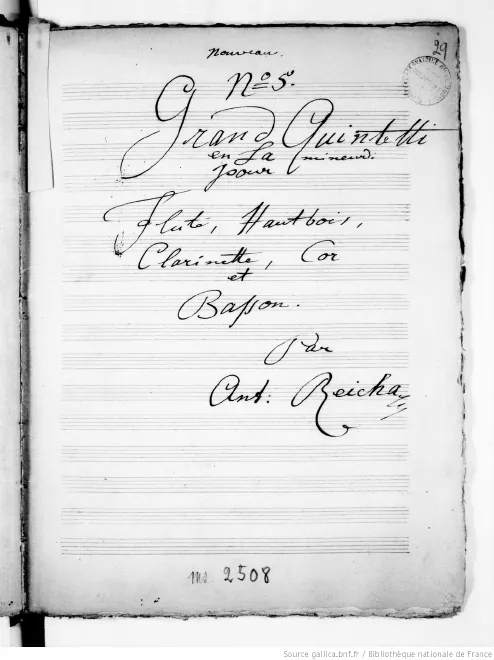 29
Nouveau.
Nº 5º.
Grand Quintetti
en La mineur.
pour
Flute, Hautbois,
Clarinette, Cor
et
Basson.
Par
Ant: Reicha
ms 2508
Source gallica.bnf.fr / Bibliothèque nationale de France